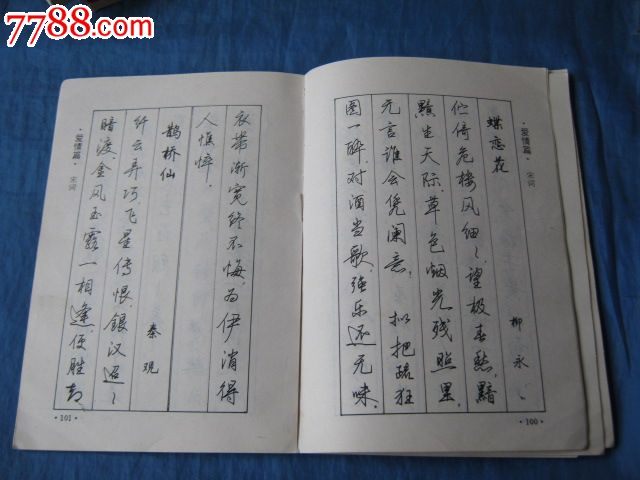 7788.com
·爱情篇· 宋词
蝶恋花 柳永
伫倚危楼风细〻,望极春愁,黯
黯生天际。草色烟光残照里,
无言谁会凭阑意。 拟把疏狂
图一醉,对酒当歌,强乐还无味。
·100·
衣带渐宽终不悔,为伊消得
人憔悴。
鹊桥仙 秦观
纤云弄巧,飞星传恨,银汉迢〻
暗渡。金风玉露一相逢,便胜却
·爱情篇· 宋词
·101·